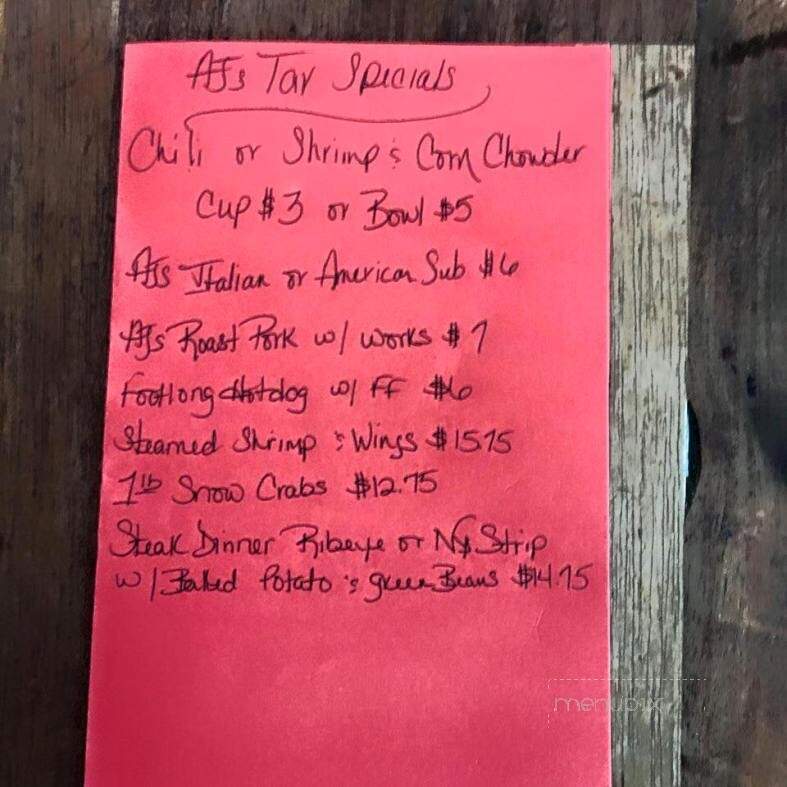 AJs Tav Specials
Chili or Shrimp & Corn Chowder
Cup $3 or Bowl $5
AJs Italian or American Sub $6
AJs Roast Pork w/ works $7
Footlong Hotdog w/ FF $6
Steamed Shrimp & Wings $15.75
1lb Snow Crabs $12.75
Steak Dinner Ribeye or NY Strip
w/ Baked Potato & green Beans $14.75
menupix